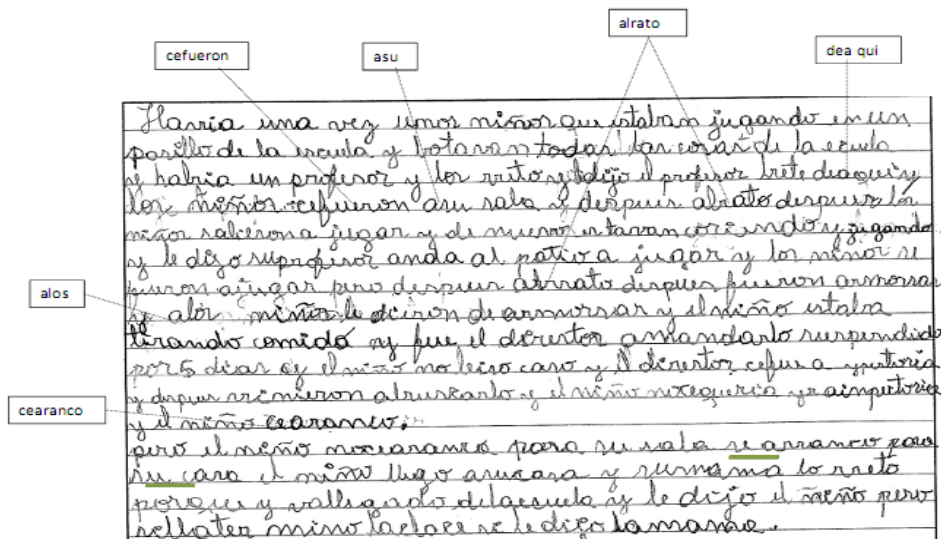 alrato
cefueron
asu
dea qui
Havria una vez unos niños que estaban jugando en un
pasillo de la escuela y botavan todas las cosas de la ecuela
y habria un profesor y los rreto y dijo el profesor brete deaqui y
los niños cefueron asu sala y despues alrato despues los
niños salieron a jugar y de nuevo estavan corriendo y jugando
y le digo suprofesor anda al patio a jugar y los niños se
fueron ajugar pero despues alrrato despues fueron armorsar
alos
y alos niños le dieron de armorsar y el niño estaba
tirando comida y fue el director amandarlo suspendido
por 5 dias y el niño no leiso caso y el director cefue a
y despues vinieron abuscarlo y el niño nocequeria
cearanco
y el niño cearanco.
pero el niño nocearanco para su sala se arranco para
su casa el niño llego asucasa y sumama lo rreto
porque y vallegando delaescuela y le dijo el niño pero
mino laclace se le digo lamama.